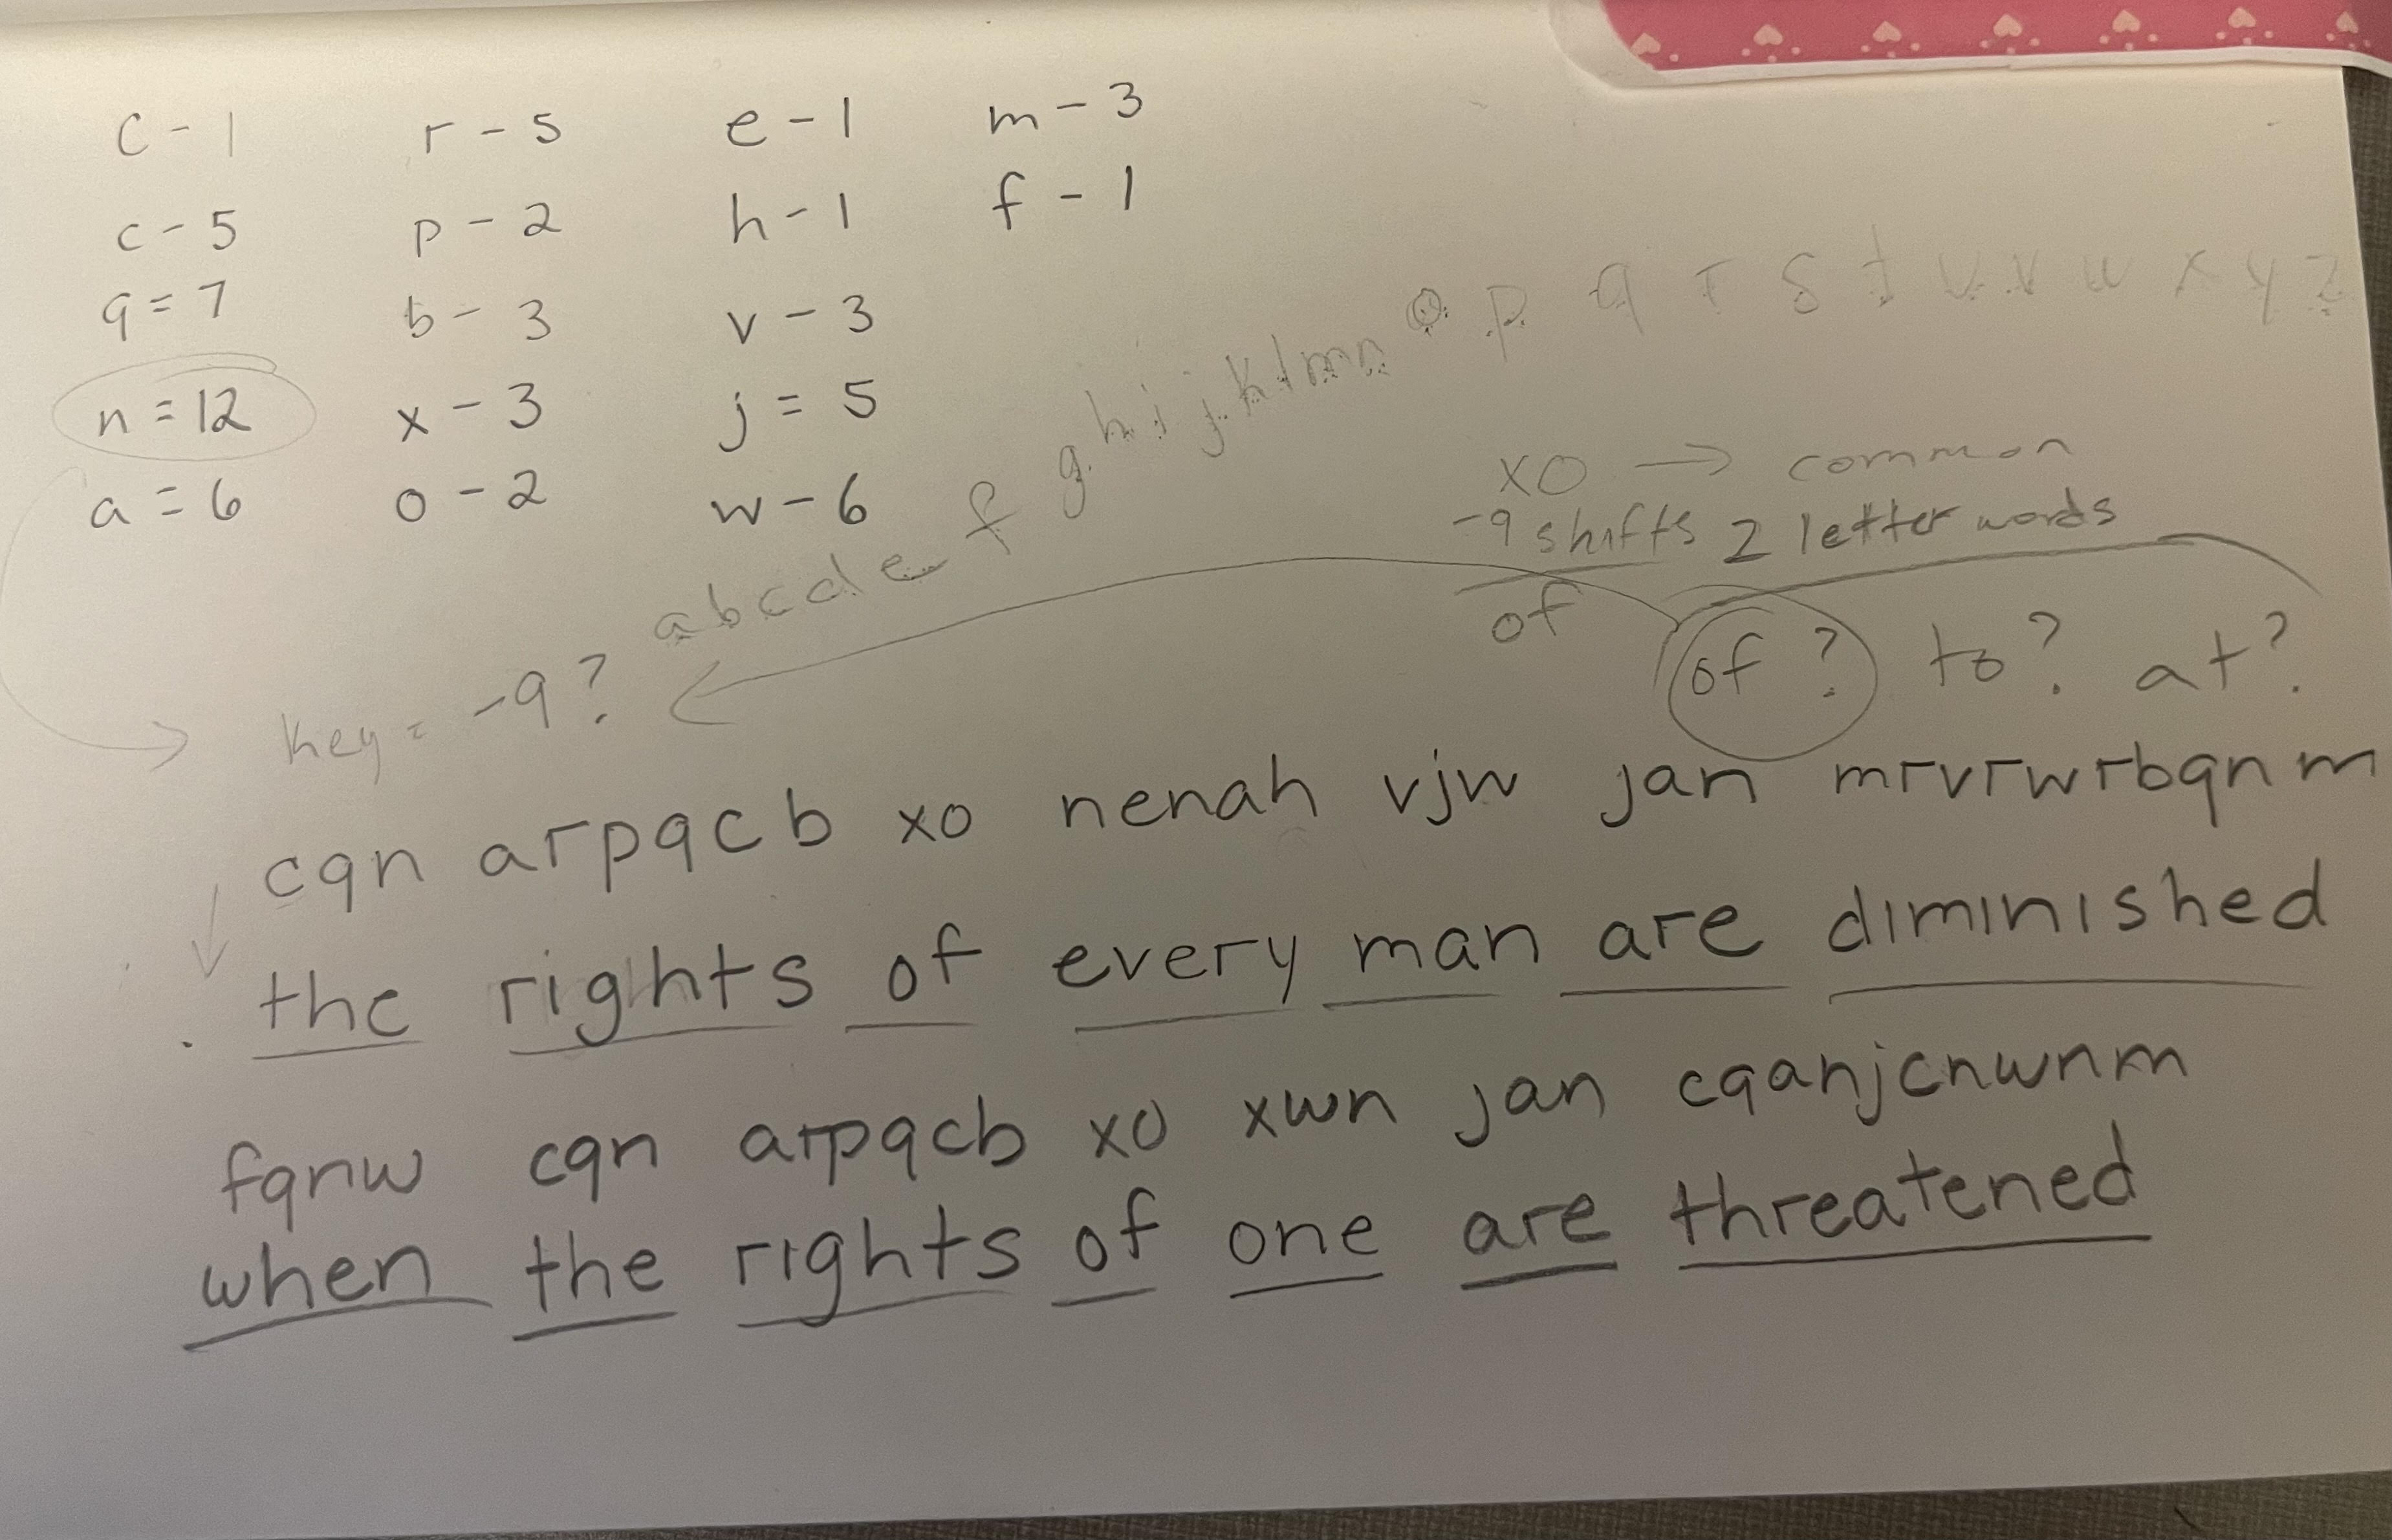 c - 1 r - 5 e - 1 m - 3
c - 5 p - 2 h - 1 f - 1
q = 7 b - 3 v - 3
n = 12 x - 3 j = 5
a = 6 o - 2 w - 6
a b c d e f g h i j k l m n o p q r s t u v w x y z
xo → common
-9 shifts 2 letter words
of of ? to? at?
key = -9?
cqn arpqcb xo nenah vjw jan mrvrwrbqnm
the rights of every man are diminished
fqnw cqn arpqcb xo xwn jan cqanjcnwnm
when the rights of one are threatened